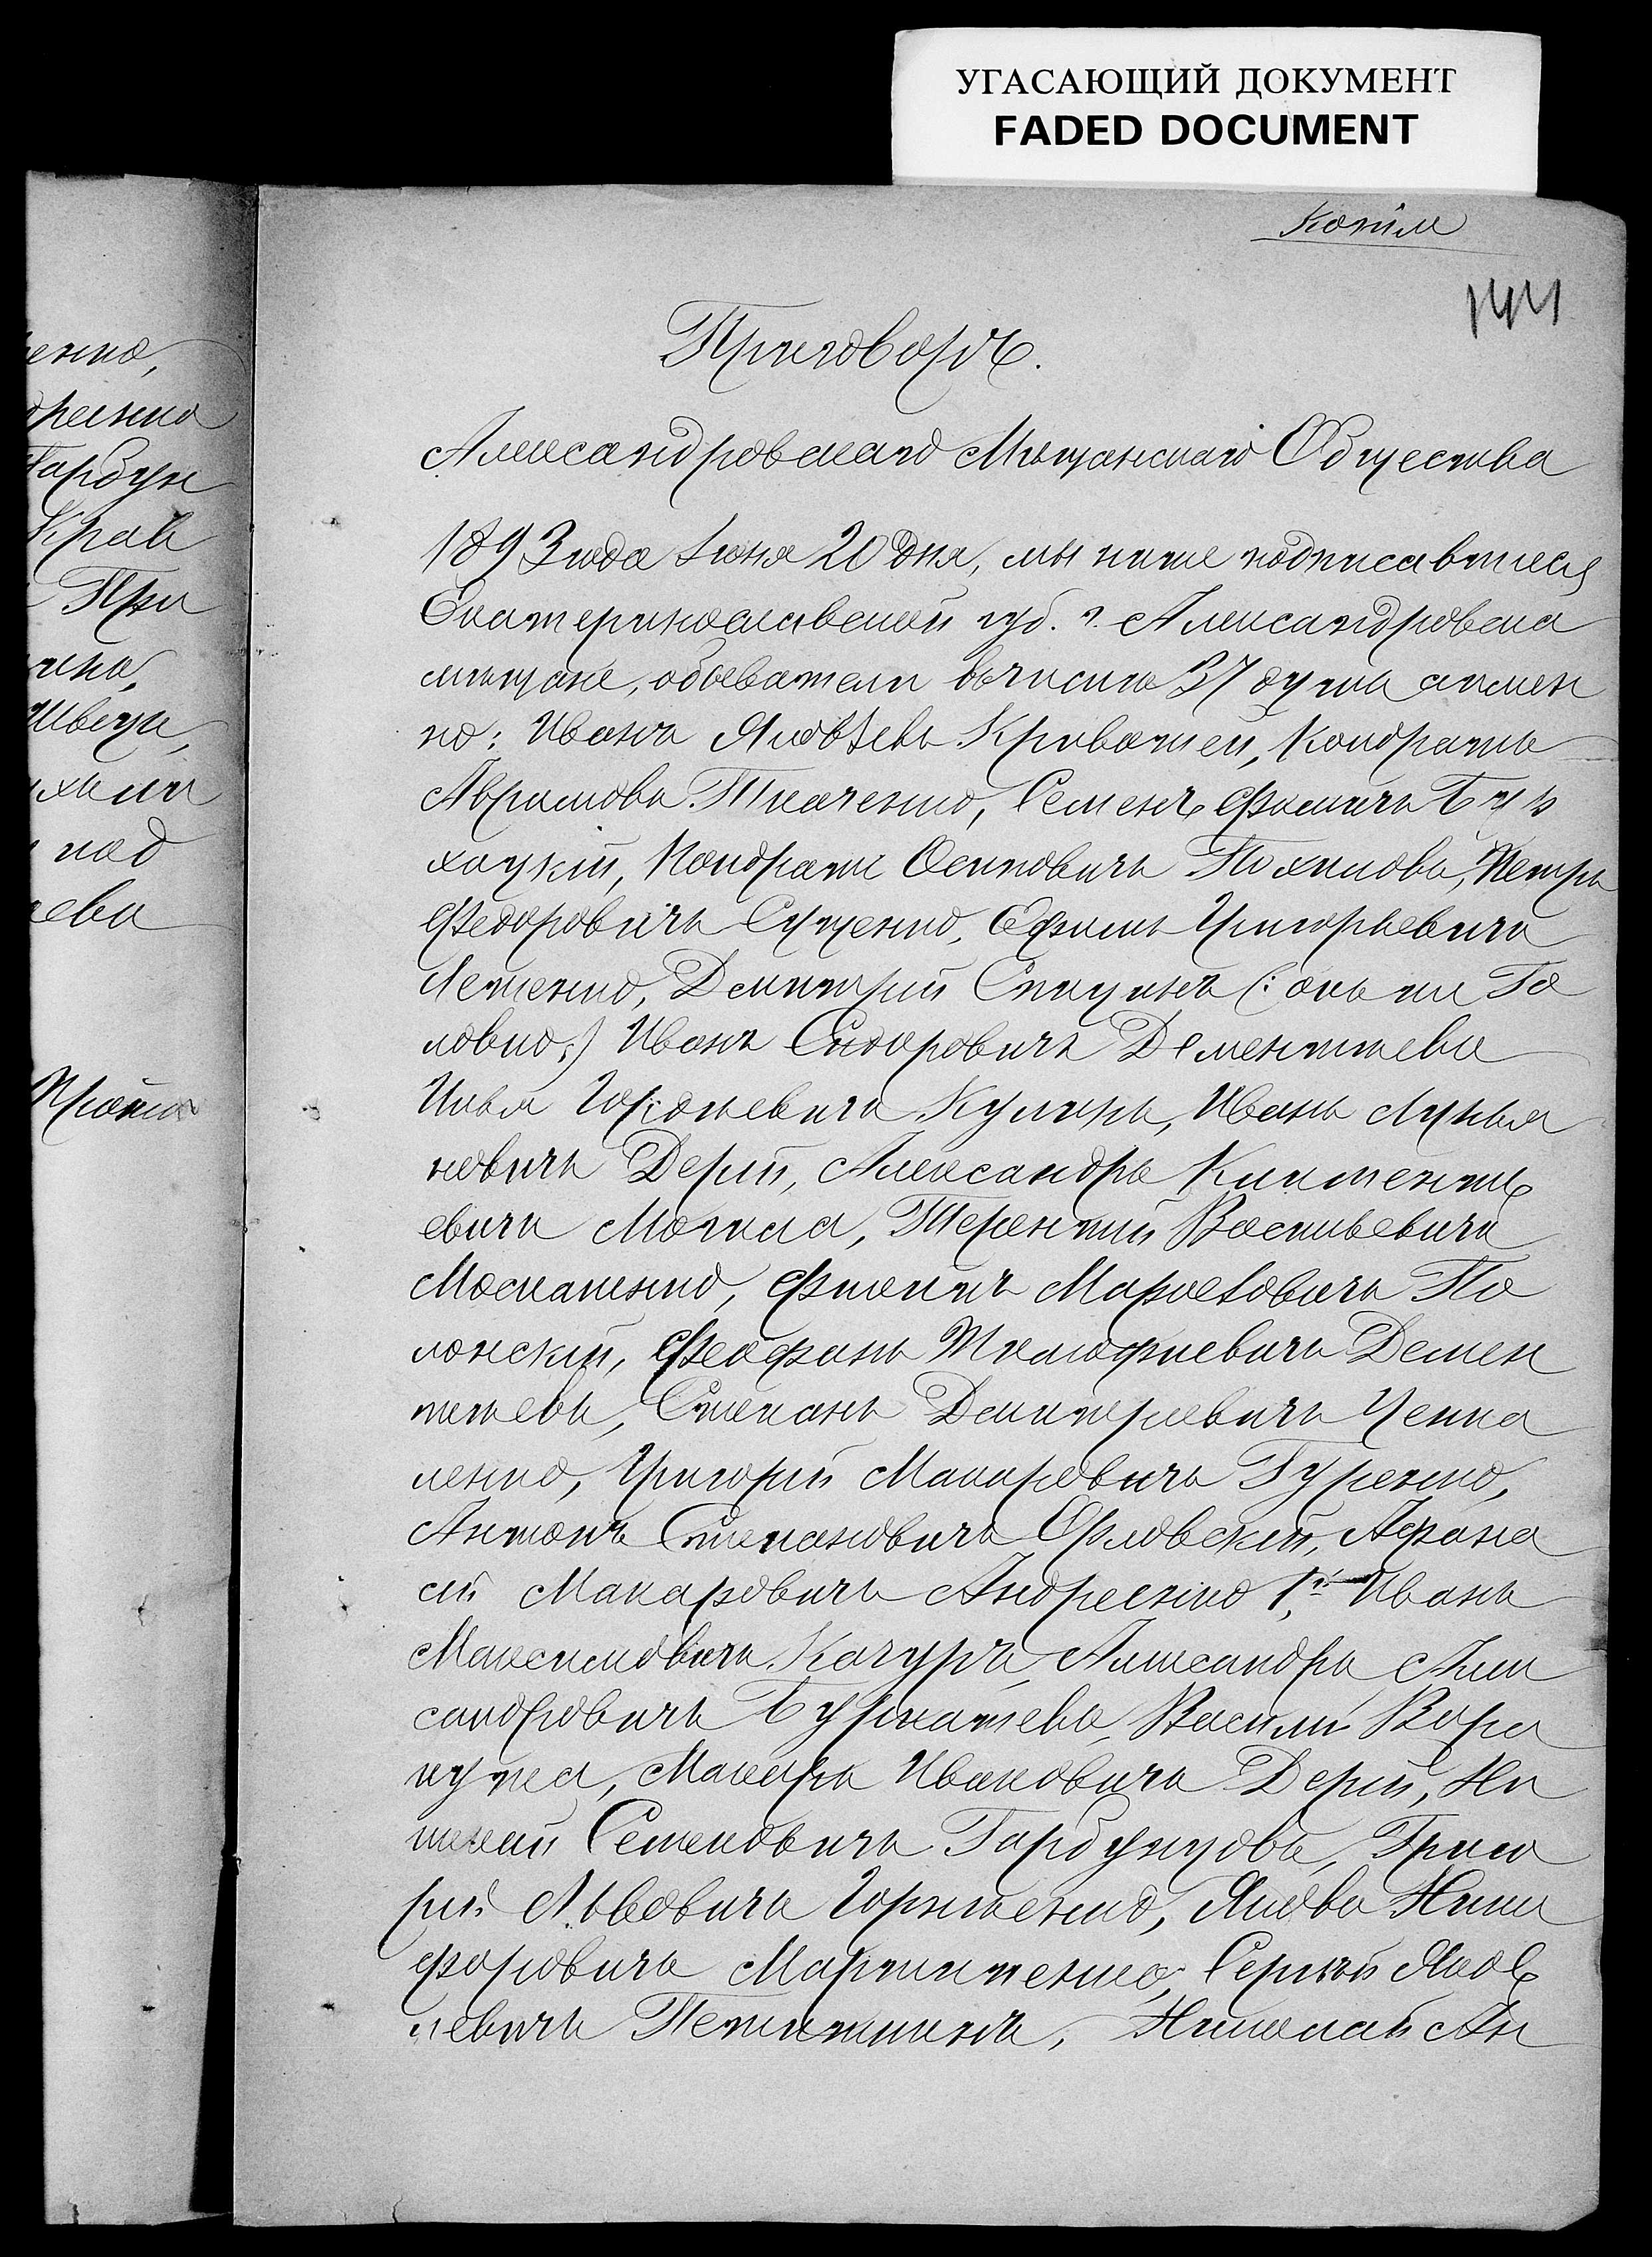 УГАСАЮЩИЙ ДОКУМЕНТ
FADED DOCUMENT
Копія
144
Приговоръ.
Александровскаго Мѣщанскаго Общества
1893 года Iюня 20 дня, мы ниже подписавшіеся
Екатеринославской губ. г. Александровска
мѣщане, обыватели въ числѣ 37 душъ а имен
но: Иванъ Яковлевъ Кривошей, Кондратъ
Аврамовъ Ткаченко, Семенъ Фомичъ
Кондратъ Осиповичъ Похиловъ, Петръ
Федоровичъ Сущенко, Ефимъ Григорьевичъ
Лещенко, Дмитрій Спицинъ (: онъ же Го
ловко :) Иванъ Сидоровичъ Дементьевъ
Илья Гордѣевичъ Кушнръ, Иванъ Лукья
новичъ Дерій, Александръ Климентъ
евичъ Могила, Терентій Васильевичъ
Москаленко, Филипъ Марковичъ По
лонскій, Феофанъ Тимофіевичъ Демен
тьевъ, Степанъ Дмитріевичъ Чепка
ленко, Григорій Макаровичъ Гуренко,
Антонъ Степановичъ Орловскій, Афана
сій Макаровичъ Андреенко 1й, Иванъ
Максимовичъ Качуръ, Александръ Алек
сандровичъ Бурнашевъ, Василій Вора
Макаръ Ивановичъ Дерій, Ни
колай Семеновичъ Гарбузовъ, Григо
рій Львовичъ Горпенко, Яковъ Ники
форовичъ Мартиненко, Сергѣй Яков
левичъ Николай Ан
енко,
дреенко
Гарбузъ
Крав
При
Швецъ,